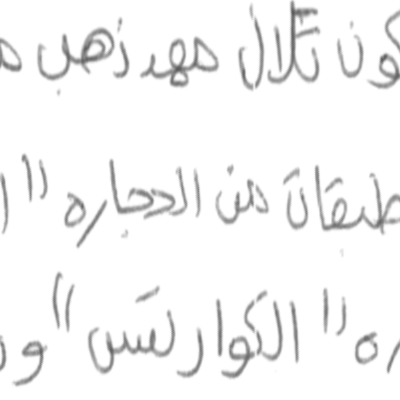 كون تلال مهد ذهب
طبقات من الحجاره "
ره " الكوارتس "